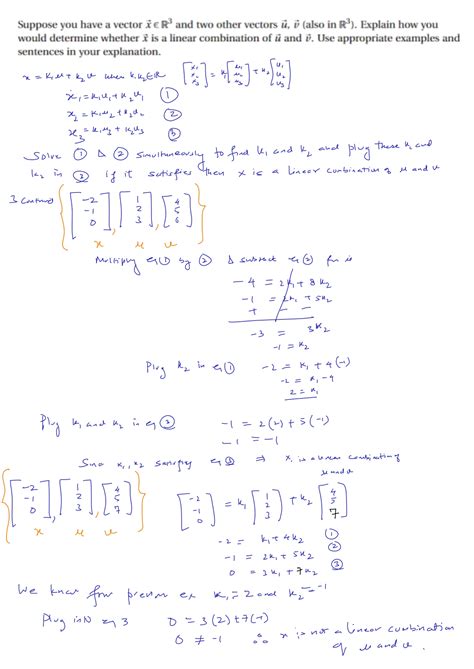 Suppose you have a vector x⃗ ∈ ℝ³ and two other vectors u⃗, v⃗ (also in ℝ³). Explain how you
would determine whether x⃗ is a linear combination of u⃗ and v⃗. Use appropriate examples and
sentences in your explanation.
x = k₁u + k₂v when k₁k₂∈ℝ [x₁ x₂ x₃] = k₁[u₁ u₂ u₃] + k₂[v₁ v₂ v₃]
x₁ = k₁u₁ + k₂v₁ ①
x₂ = k₁u₂ + k₂v₂ ②
x₃ = k₁u₃ + k₂v₃ ③
Solve ① & ② simultaneously to find k₁ and k₂ and plug these k₁ and
k₂ in ③ if it satisfies then x is a linear combination of u and v
3 {[-2 -1 0], [1 2 3], [4 5 6]}
x u v
Multiply eq ① by ② & subtract eq ②
-4 = 2k₁ + 8k₂
-1 = 2k₁ + 5k₂
+ - -
-3 = 3k₂
-1 = k₂
Plug k₂ in eq ① -2 = k₁ + 4(-1)
-2 = k₁ - 4
2 = k₁
Plug k₁ and k₂ in eq ② -1 = 2(2) + 5(-1)
-1 = -1
Since k₁, k₂ satisfy eq ③ ⇒ x is a linear combination of
u and v
{[-2 -1 0], [1 2 3], [4 5 7]} [-2 -1 0] = k₁[1 2 3] + k₂[4 5 7]
x u v
-2 = k₁ + 4k₂ ①
-1 = 2k₁ + 5k₂ ②
0 = 3k₁ + 7k₂ ③
We know from previous ex k₁ = 2 and k₂ = -1
Plug in eq 3 0 = 3(2) + 7(-1)
0 ≠ -1 ∴ x is not a linear combination
of u and v.